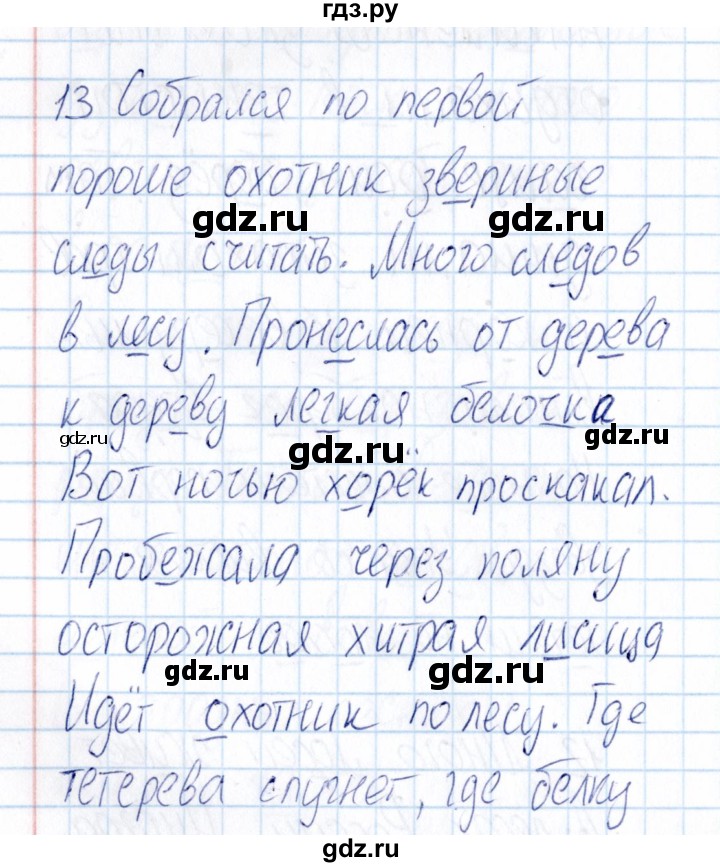 гдз.ру
13 Собрался по первой
пороше охотник звериные
gdz.ru gdz.ru
следы считать. Много следов
в лесу. Пронеслась от дерева
к дереву легкая белочка
gdz.ru gdz.ru gdz.ru
Вот ночью хорёк проскакал.
Пробежала через поляну
осторожная хитрая лисица
gdz.ru gdz.ru
Идёт охотник по лесу. Где
тетерева спугнет, где белку
гдз.ру